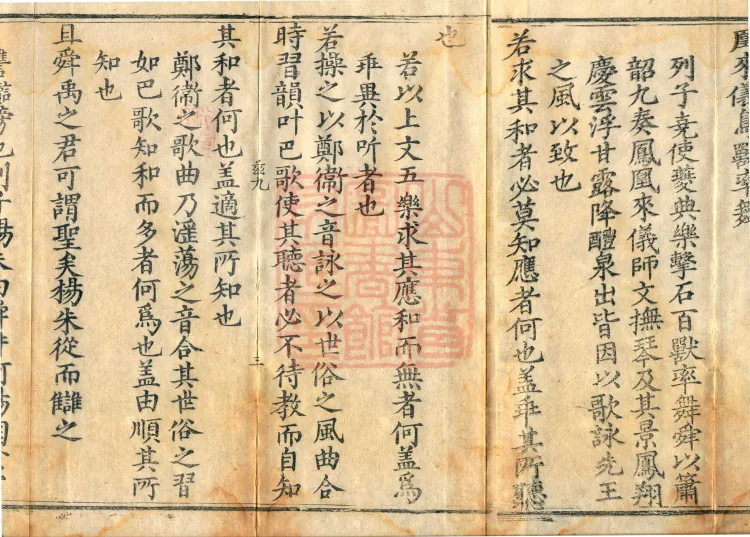 凰來儀鳥獸率舞
列子堯使夔典樂擊石百獸率舞舜以簫
韶九奏鳳凰來儀師文撫琴及其景鳳翔
慶雲浮甘露降醴泉出皆因以歌詠先王
之風以致也
若求其和者必莫知應者何也盖乖其所聽
也
若以上文五樂求其應和而無者何盖為
乖異於听者也
若操之以鄭衞之音詠之以世俗之風曲合
時習韻叶巴歌使其聽者必不待教而自知
三
其和者何也盖適其所知也
鄭衞之歌曲乃滛蕩之音合其世俗之習
如巴歌知和而多者何爲也盖由順其所
知也
且舜禹之君可謂聖矣楊朱從而讎之
山東省
圖書館